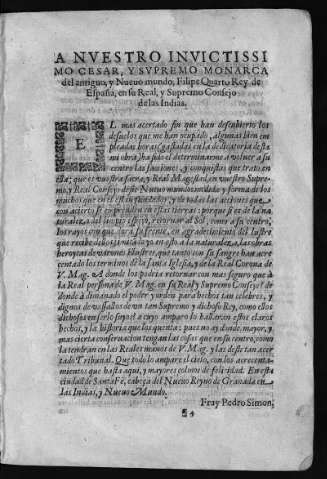 A NVESTRO INVICTISSI
MO CESAR, Y SVPREMO MONARCA
del antiguo, y Nueuo mundo, Filipe Quarto Rey de
España, en su Real, y Supremo Consejo
de las Indias.
EL mas acertado fin que han descubierto los
desuelos que me han ocupado, algunas bien em
pleadas horas gastadas en la dedicatoria desta
mi obra, ha sido el determinarme a voluer a su
centro las faciones, y conquistas que trato en
ella; que es vuestra sacra, y Real Magestad, en su Supre-
mo, y Real Consejo deste Nueuo mundo
muchos que en el estan y de todas las acciones que
con acierto se emprenden en estas tierras: porque si es de la na
turaleza del el retornar al Sol, como a su centro,
los rayos con que dora su frente, en agradecimiento del lustre
que recibe dellos; imitando yo en esto a la naturaleza, las obras
heroycas de varones Ilustres, que tanto con su sangre han acre
centado los terminos de la santa Iglesia, y de la Real Corona de
V. Mag. A donde los podria retornar con mas seguro que à
la Real persona de V. Mag. en su Real y Supremo Consejo? de
donde à dimanado el poder y orden para hechos tan celebres, y
dignos de vassallos de un tan Supremo y dichoso Rey, como ellos
dichosos en serlo suyos? a cuyo amparo lo hallaron estos claros
hechos, y la historia que los quenta: pues no ay donde mayor, y
mas cierta conseruacion tengan las cosas, que en su centro, como
la tendran en las Reales manos de V. Mag. y las deste tan acer
tado Tribunal. Que todo lo ampare el cielo, con los acrecenta-
mientos que hasta aqui, y mayores colmos de felicidad. En esta
ciudad de Santa Fè, cabeça del Nueuo Reyno de Granada en
las Indias, y Nueuo Mundo.
Fray Pedro Simon.